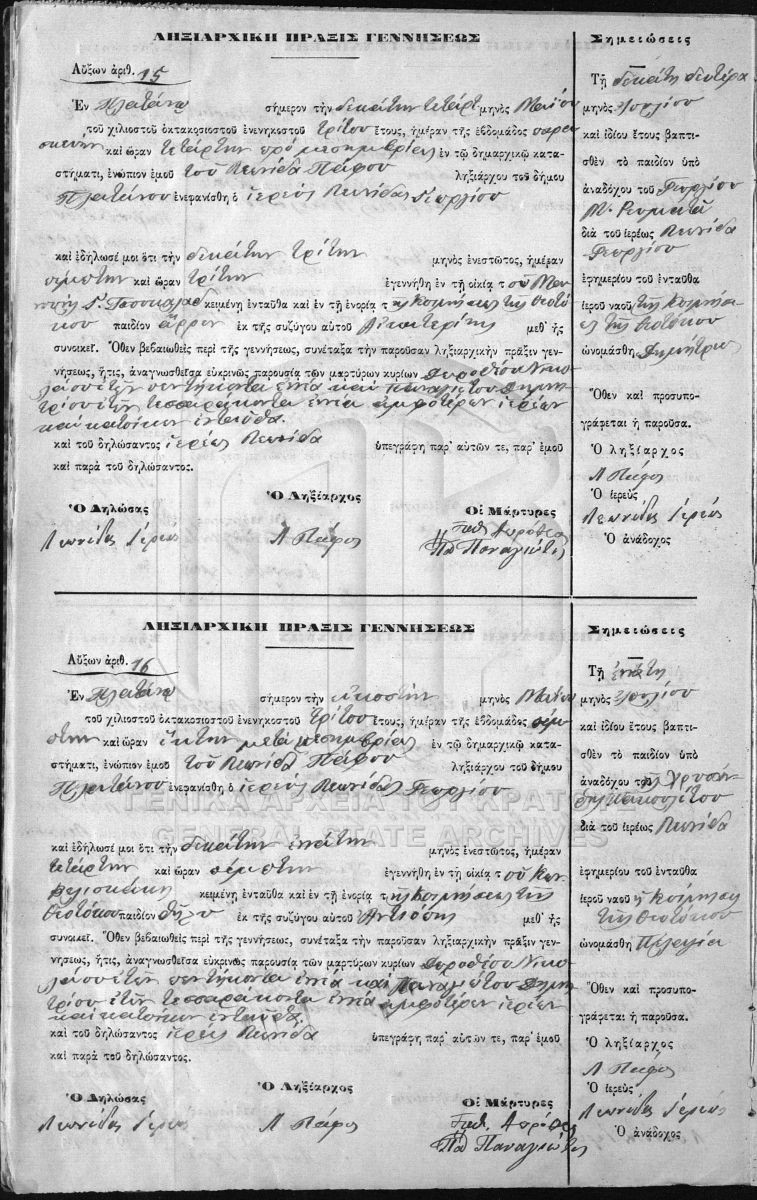 ΛΗΞΙΑΡΧΙΚΗ ΠΡΑΞΙΣ ΓΕΝΝΗΣΕΩΣ
Αὔξων ἀριθ. 15
Ἐν Πλατάνῳ σήμερον τὴν δεκάτην τετάρτ μηνὸς Μαΐου
τοῦ χιλιοστοῦ ὀκτακοσιοστοῦ ἐνενηκοστοῦ τρίτου ἔτους, ἡμέραν τῆς ἑβδομάδος παρα
σκευὴν καὶ ὥραν τετάρτην πρὸ μεσημβρίας ἐν τῷ δημαρχικῷ κατα-
στήματι, ἐνώπιον ἐμοῦ τοῦ Λεωνίδα Πάφου ληξιάρχου τοῦ δήμου
Πλατάνου ἐνεφανίσθη ὁ ἱερεὺς Λεωνίδας Γεωργίου
καὶ ἐδήλωσέ μοι ὅτι τὴν δεκάτην τρίτην μηνὸς ἐνεστῶτος, ἡμέραν
πέμπτην καὶ ὥραν τρίτην ἐγεννήθη ἐν τῇ οἰκίᾳ τοῦ
κειμένῃ ἐνταῦθα καὶ ἐν τῇ ἐνορίᾳ τῆς Κοιμήσεως τῆς Θεοτό
κου παιδίον ἄρρεν ἐκ τῆς συζύγου αὐτοῦ Αἰκατερίνης μεθ' ἧς
συνοικεῖ. Ὅθεν βεβαιωθεὶς περὶ τῆς γεννήσεως, συνέταξα τὴν παροῦσαν ληξιαρχικὴν πρᾶξιν γεν-
νήσεως, ἥτις, ἀναγνωσθεῖσα εὐκρινῶς παρουσίᾳ τῶν μαρτύρων κυρίων Δωροθέου Νικο
λάου ἐτῶν πεντήκοντα ἐννέα καὶ Παναγιώτου Δημη
τρίου ἐτῶν τεσσαράκοντα ἐννέα ἀμφοτέρων ἱερέων
καὶ κατοίκων ἐνταῦθα.
καὶ τοῦ δηλώσαντος ἱερέως Λεωνίδα ὑπεγράφη παρ' αὐτῶν τε, παρ' ἐμοῦ
καὶ παρὰ τοῦ δηλώσαντος.
Ὁ Δηλώσας Ὁ Ληξίαρχος Οἱ Μάρτυρες
Λεωνίδας Ἱερεύς Λ Πάφος Παπ Δωρόθεος
Πα Παναγιώτης
Σημειώσεις
Τῇ δεκάτῃ δευτέρᾳ
μηνὸς Ἰουλίου
καὶ ἰδίου ἔτους βαπτι-
σθὲν τὸ παιδίον ὑπὸ
ἀναδόχου τοῦ Γεωργίου
διὰ τοῦ ἱερέως Λεωνίδα
Γεωργίου
ἐφημερίου τοῦ ἐνταῦθα
ἱεροῦ ναοῦ τῆς Κοιμήσε
ως τῆς Θεοτόκου
ὠνομάσθη Δημήτριος
Ὅθεν καὶ προσυπο-
γράφεται ἡ παροῦσα.
Ὁ ληξίαρχος
Λ Πάφος
Ὁ ἱερεὺς
Λεωνίδας Ἱερεύς
Ὁ ἀνάδοχος
ΛΗΞΙΑΡΧΙΚΗ ΠΡΑΞΙΣ ΓΕΝΝΗΣΕΩΣ
Αὔξων ἀριθ. 16
Ἐν Πλατάνῳ σήμερον τὴν εἰκοστὴν μηνὸς Μαΐου
τοῦ χιλιοστοῦ ὀκτακοσιοστοῦ ἐνενηκοστοῦ τρίτου ἔτους, ἡμέραν τῆς ἑβδομάδος πέμ
πτην καὶ ὥραν ἕκτην μετὰ μεσημβρίας ἐν τῷ δημαρχικῷ κατα-
στήματι, ἐνώπιον ἐμοῦ τοῦ Λεωνίδα Πάφου ληξιάρχου τοῦ δήμου
Πλατάνου ἐνεφανίσθη ὁ ἱερεὺς Λεωνίδας Γεωργίου
καὶ ἐδήλωσέ μοι ὅτι τὴν δεκάτην ἐννάτην μηνὸς ἐνεστῶτος, ἡμέραν
τετάρτην καὶ ὥραν πέμπτην ἐγεννήθη ἐν τῇ οἰκίᾳ τοῦ
κειμένῃ ἐνταῦθα καὶ ἐν τῇ ἐνορίᾳ τῆς Κοιμήσεως τῆς
Θεοτόκου παιδίον θῆλυ ἐκ τῆς συζύγου αὐτοῦ μεθ' ἧς
συνοικεῖ. Ὅθεν βεβαιωθεὶς περὶ τῆς γεννήσεως, συνέταξα τὴν παροῦσαν ληξιαρχικὴν πρᾶξιν γεν-
νήσεως, ἥτις, ἀναγνωσθεῖσα εὐκρινῶς παρουσίᾳ τῶν μαρτύρων κυρίων Δωροθέου Νικο
λάου ἐτῶν πεντήκοντα ἐννέα καὶ Παναγιώτου Δημη
τρίου ἐτῶν τεσσαράκοντα ἐννέα ἀμφοτέρων ἱερέων
καὶ κατοίκων ἐνταῦθα.
καὶ τοῦ δηλώσαντος ἱερέως Λεωνίδα ὑπεγράφη παρ' αὐτῶν τε, παρ' ἐμοῦ
καὶ παρὰ τοῦ δηλώσαντος.
Ὁ Δηλώσας Ὁ Ληξίαρχος Οἱ Μάρτυρες
Λεωνίδας Ἱερεύς Λ Πάφος Παπ Δωρόθεος
Πα Παναγιώτης
Σημειώσεις
Τῇ ἐννάτῃ
μηνὸς Ἰουλίου
καὶ ἰδίου ἔτους βαπτι-
σθὲν τὸ παιδίον ὑπὸ
ἀναδόχου
διὰ τοῦ ἱερέως Λεωνίδα
ἐφημερίου τοῦ ἐνταῦθα
ἱεροῦ ναοῦ ἡ Κοίμησις
τῆς Θεοτόκου
ὠνομάσθη Πελαγία
Ὅθεν καὶ προσυπο-
γράφεται ἡ παροῦσα.
Ὁ ληξίαρχος
Λ Πάφος
Ὁ ἱερεὺς
Λεωνίδας Ἱερεύς
Ὁ ἀνάδοχος
ΓΕΝΙΚΑ ΑΡΧΕΙΑ ΤΟΥ ΚΡΑΤΟΥΣ
GENERAL STATE ARCHIVES